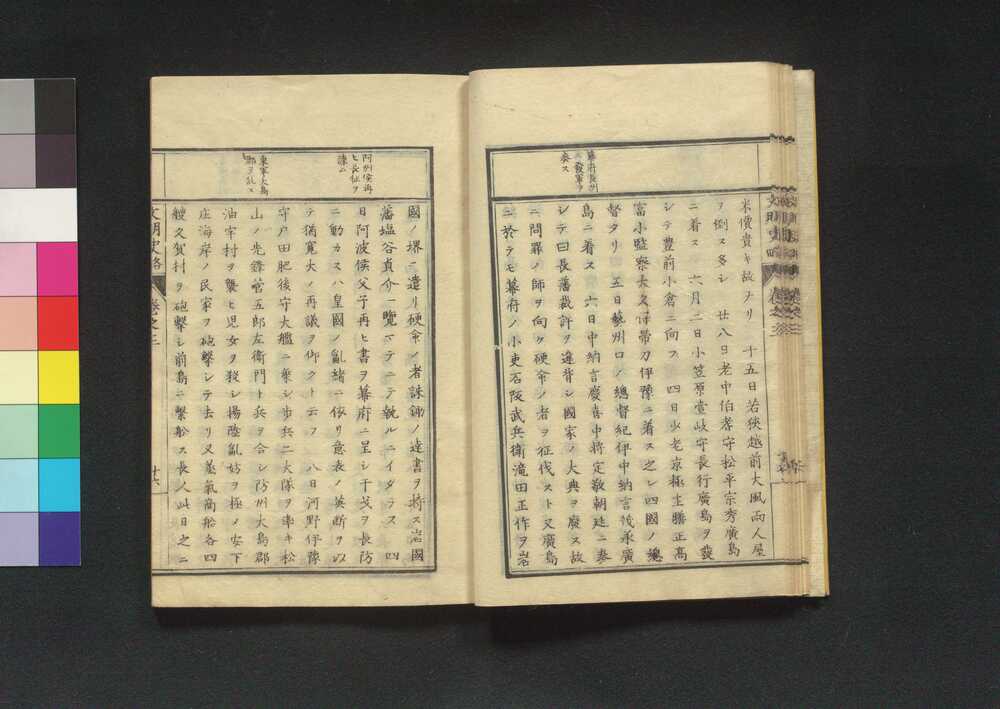 幕府長州
ニ發軍ヲ
奏ス
米價貴キ故ナリ 十五日若狹越前大風雨人屋
ヲ倒ス多シ 廿八日老中伯耆守松平宗秀廣島
ニ着ス 六月二日小笠原壹岐守長行廣島ヲ發
シテ豊前小倉ニ向フ 四日少老京極主膳正高
富小監察大久保帶刀伊豫ニ着ス之レ四國ノ總
督タリ 五日藝州口ノ總督紀伊中納言茂承廣
島ニ着ス 六日中納言慶喜中將定敬朝廷ニ奏
シテ曰長藩裁許ヲ違背シ國家ノ大典ヲ廢ス故
ニ問罪ノ師ヲ向ケ硬命ノ者ヲ征伐スト又廣島
ニ於テモ幕府ノ小吏石阪武兵衛滝田正作ヲ岩
文明史略 卷之三
阿州侯再
ヒ長征ヲ
諫ム
東軍大島
郡ヲ乱ス
國ノ堺ニ遣リ硬命ノ者誅鋤ノ達書ヲ持ス岩國
藩塩谷貞介一覽マテニテ執ルニイタラス 四
日阿波侯父子再ヒ書ヲ幕府ニ呈シ干戈ヲ長防
ニ動カスハ皇國ノ亂緒ニ依リ意表ノ英断ヲ以
テ猶寛大ノ再議ヲ仰クト云フ 八日河野伊豫
守戸田肥後守大艦ニ乗シ歩兵二大隊ヲ率キ松
山ノ先鋒菅五郎左衛門ト兵ヲ合シ防州大島郡
油宇村ヲ襲ヒ児女ヲ殺シ揚陸亂妨ヲ極ノ安下
庄海岸ノ民家ヲ砲撃シテ去リ又蒸氣商船各四
艘久賀村ヲ砲撃シ前島ニ繋船ス長人此日之ニ
文明史略 卷之三 十六